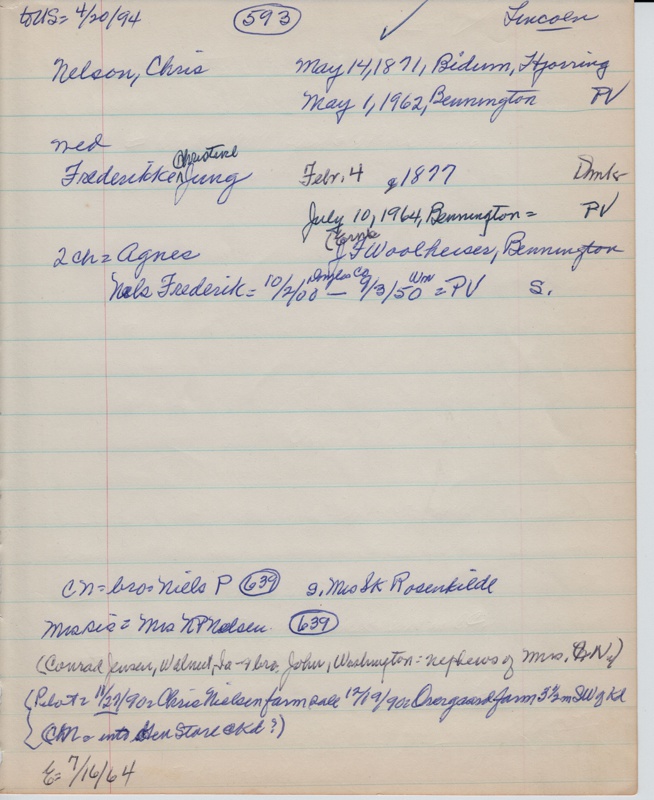 to US = 4/20/94 (593) Lincoln
Nelson, Chris May 14, 1871, Bidum, Hjorring
May 1, 1962, Bennington PV
med
Christine
Frederikke Jung Febr. 4 1877
July 10, 1964, Bennington = PV
2 ch = Agnes J F Woolheiser, Bennington
Nels Frederik = 10/2/00 — 9/3/50 = PV S.
CN = bro = Niels P (639) s, Mrs SK Rosenkilde
Mrs sis = Mrs NP Nelsen. (639)
(Conrad Jensen, Walnut, Ia - & bro. John, Washington = nephews of Mrs. N)
(Pilot = 11/27/90 = Chris Nielsen farm sale 12/19/90 Overgaard farm 3½ m SW of Kd
(CN = into Gen Store Kd?)
E = 7/16/64